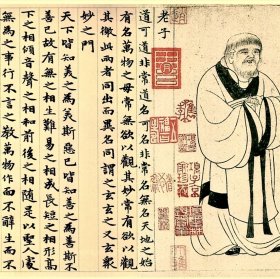 老子
道可道非常道名可名非常名無名天地之始
有名萬物之母常無欲以觀其妙常有欲以觀
其徼此兩者同出而異名同謂之玄玄之又玄衆
妙之門
天下皆知美之為美斯惡已皆知善之為善斯不
善已故有無之相生難易之相成長短之相形高
下之相傾音聲之相和前後之相隨是以聖人處
無為之事行不言之教萬物作而不辭生而不